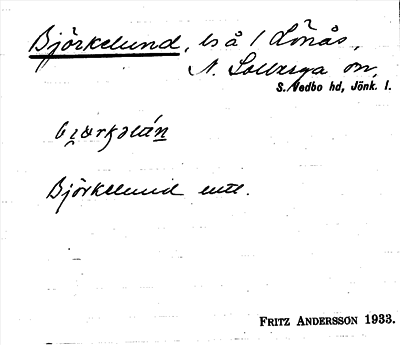 Björkelund, ls å 1 Lönås,
N. Solberga sn,
S. Vedbo hd, Jönk. l.
Björkelund enl.
FRITZ ANDERSSON 1933.